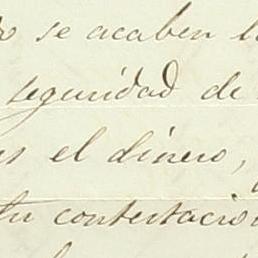 se acaben
seguridad de
el dinero,
tu contestacion